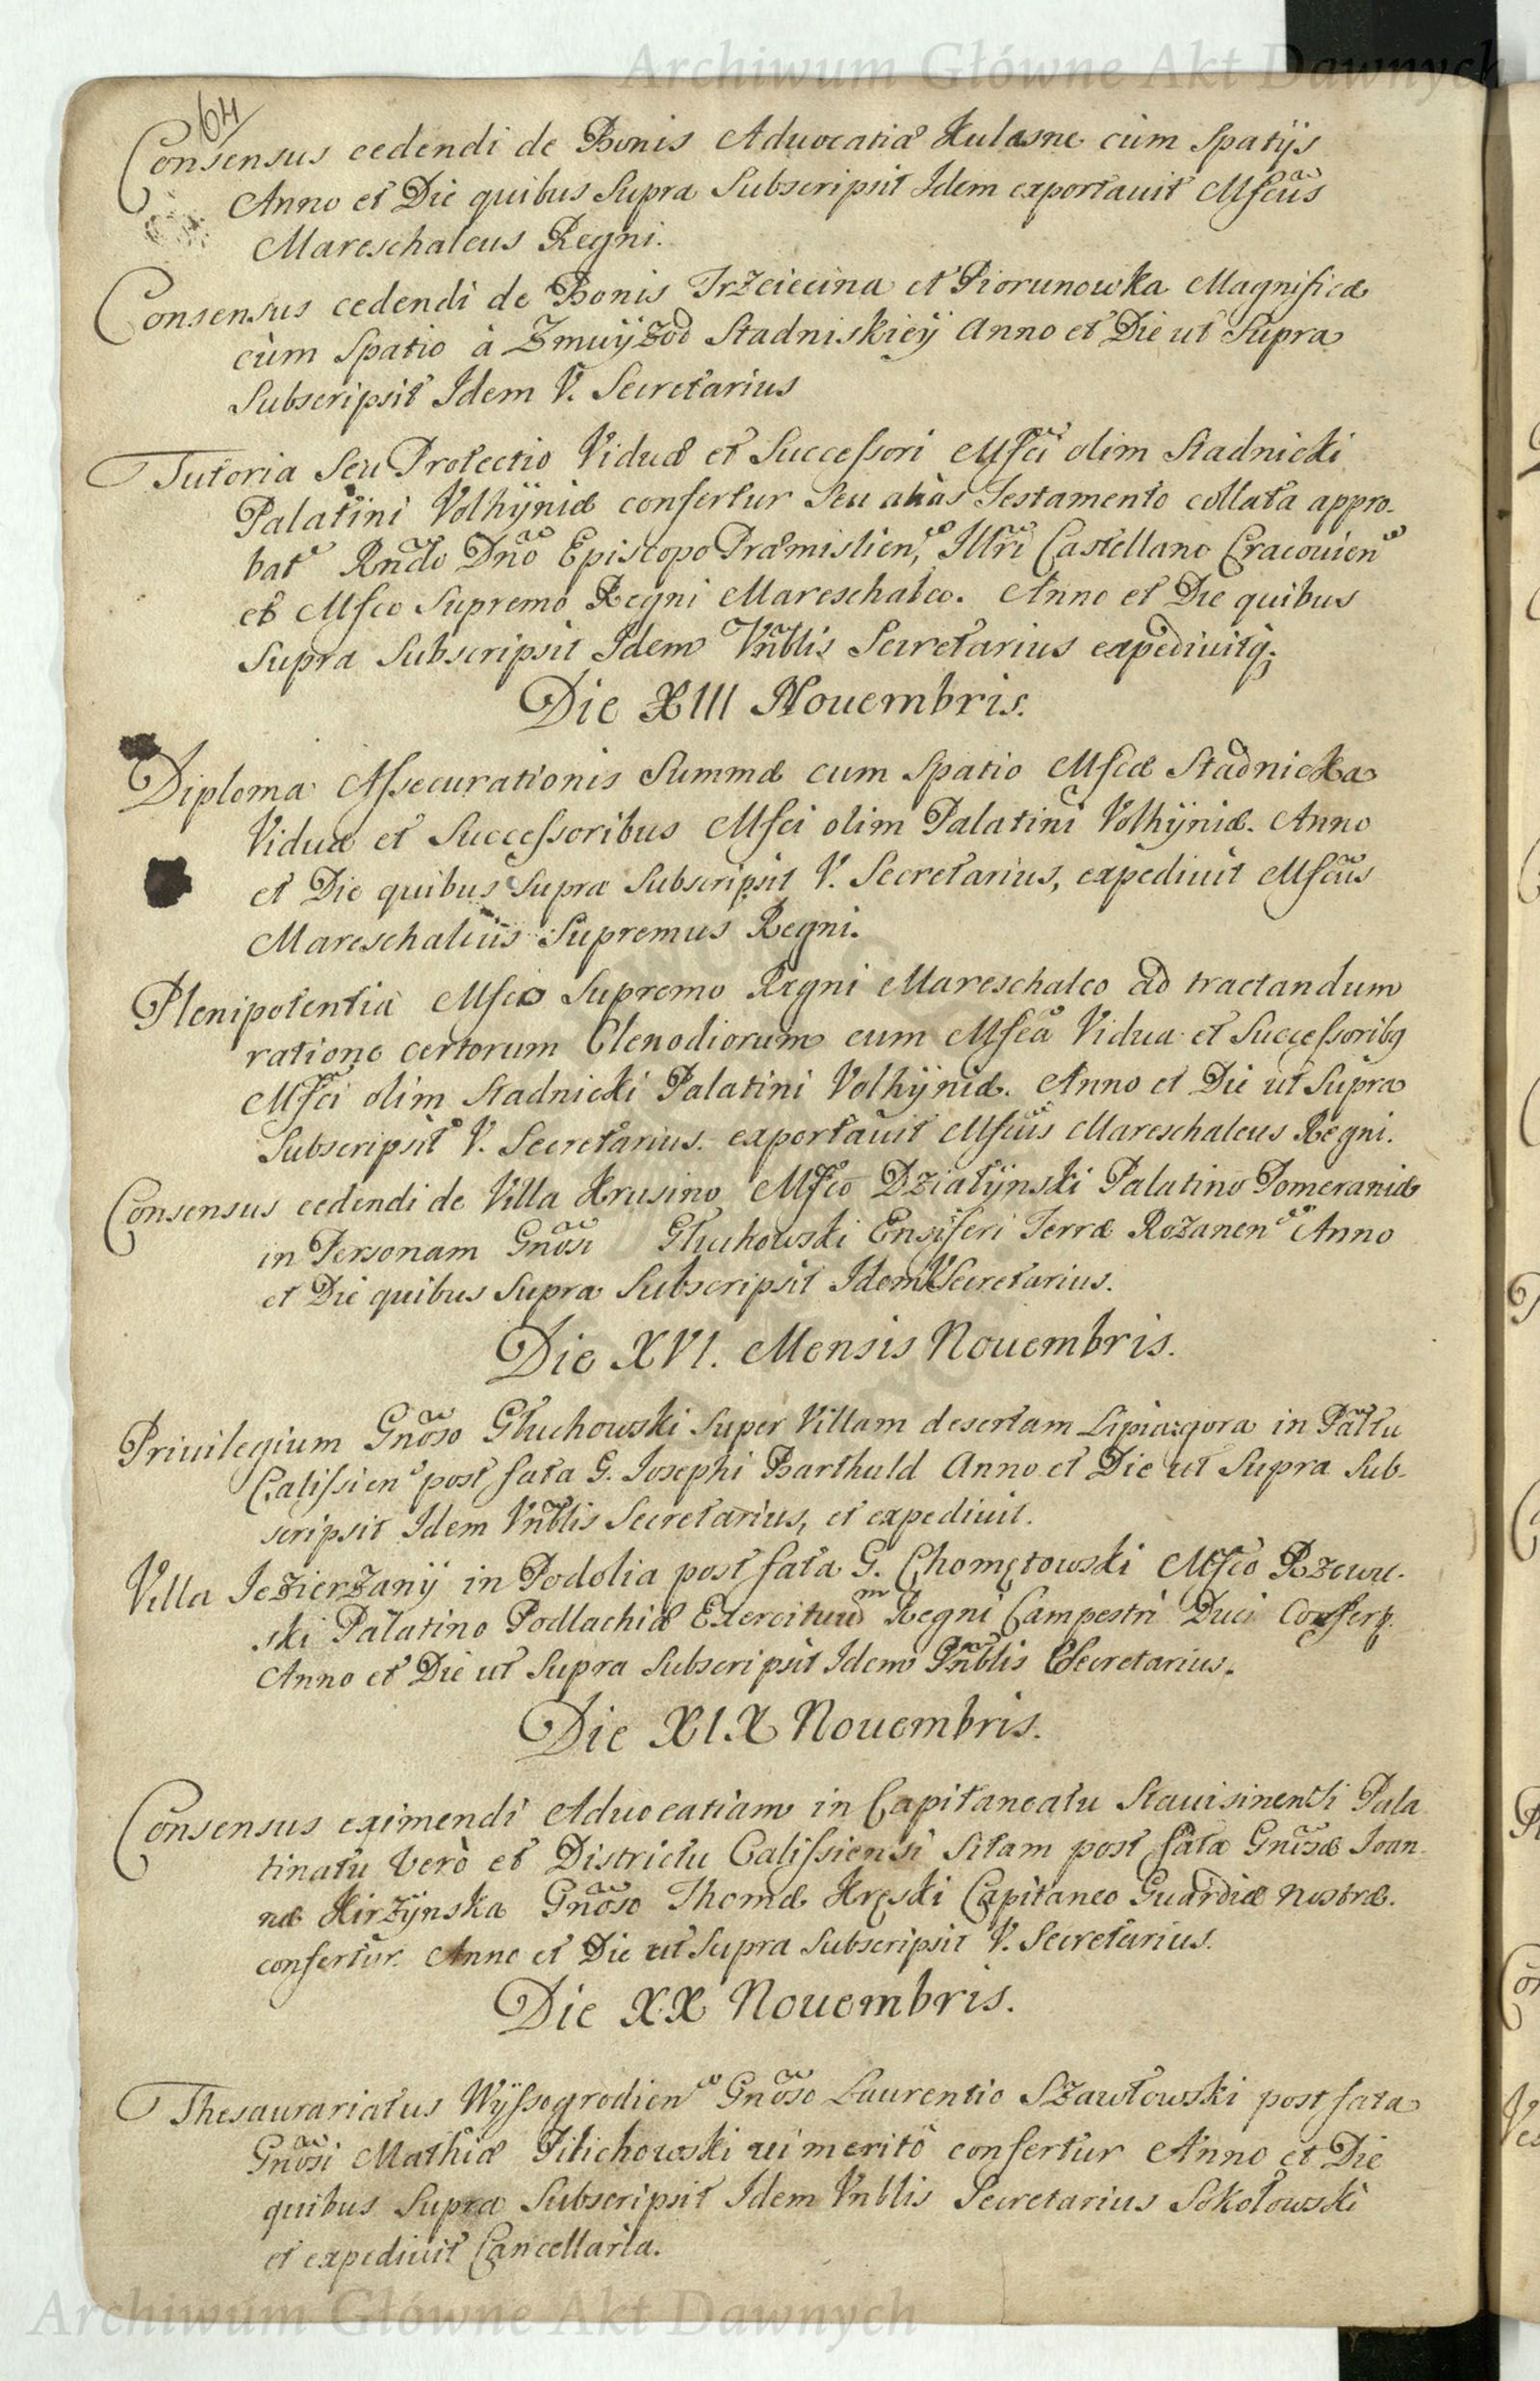 Archiwum Główne Akt Dawnych
64
Consensus cedendi de Bonis Aduocatiæ Kulasne cùm Spatijs
Anno et Die quibus Supra Subscripsit Idem exportauit Mfcus
Mareschalcus Regni.
Consensus cedendi de Bonis Trzciecina et Piorunowka Magnificæ
cùm Spatio à Stadniskieÿ Anno et Die ut Supra
Subscripsit Idem V. Secretarius
Tutoria Seu Protectio Viduæ et Successori Mfci olim Stadnicki
Palatini Volhÿniæ confertur Seu aliàs Testamento collata appro-
bat Rndo Dno Episcopo Præmislien, Illri Castellano Cracouien
et Mfco Supremo Regni Mareschalco. Anno et Die quibus
Supra Subscripsit Idem Vnblis Secretarius expediuitq;
Die XIII Nouembris.
Diploma Assecurationis Summæ cum Spatio Mfcæ Stadnicka
Viduæ et Successoribus Mfci olim Palatini Volhÿniæ. Anno
et Die quibus Supra Subscripsit V. Secretarius, expediuit Mfcus
Mareschalcus Supremus Regni.
Plenipotentia Mfco Supremo Regni Mareschalco ad tractandum
ratione certorum Clenodiorum cum Mfca Vidua et Successoribq
Mfci olim Stadnicki Palatini Volhÿniæ. Anno et Die ut Supra
Subscripsit V. Secretarius. exportauit Mfcus Mareschalcus Regni.
Consensus cedendi de Villa Krusino Mfco Działÿnski Palatino Pomeraniæ
in Personam Gnosi Głuchowski Ensiferi Terræ Rozanen Anno
et Die quibus Supra Subscripsit Idem V Secretarius.
Die XVI. Mensis Nouembris.
Priuilegium Gnoso Głuchowski Super Villam desertam Lipiagora in Pałtu
Calissien post fata G. Iosephi Barthuld Anno et Die ut Supra Sub-
scripsit Idem Vnblis Secretarius, et expediuit.
Villa Jezierzanÿ in Podolia post fata G. Chomętowski Mfco Rzewu-
ski Palatino Podlachiæ Exercituum Regni Campestri Duci
Anno et Die ut Supra Subscripsit Idem Vnblis Secretarius.
Die XIX Nouembris.
Consensus eximendi Aduocatiam in Capitaneatu Stauisinensi Pala
tinatu Verò et Districtu Calissiensi Sitam post fata Gnosæ Ioan-
næ Kirzÿnska Gnoso Thomæ Kręski Capitaneo Guardiæ nostræ.
confertur. Anno et Die ut Supra Subscripsit V. Secretarius.
Die XX Nouembris.
Thesaurariatus Wÿssogrodien Gnoso Laurentio Szawłowski post fata
Gnosi Mathiæ Pilichowski meritô confertur Anno et Die
quibus Supra Subscripsit Idem Vnblis Secretarius Sokołowski
et expediuit Cancellaria.
Archiwum Główne Akt Dawnych